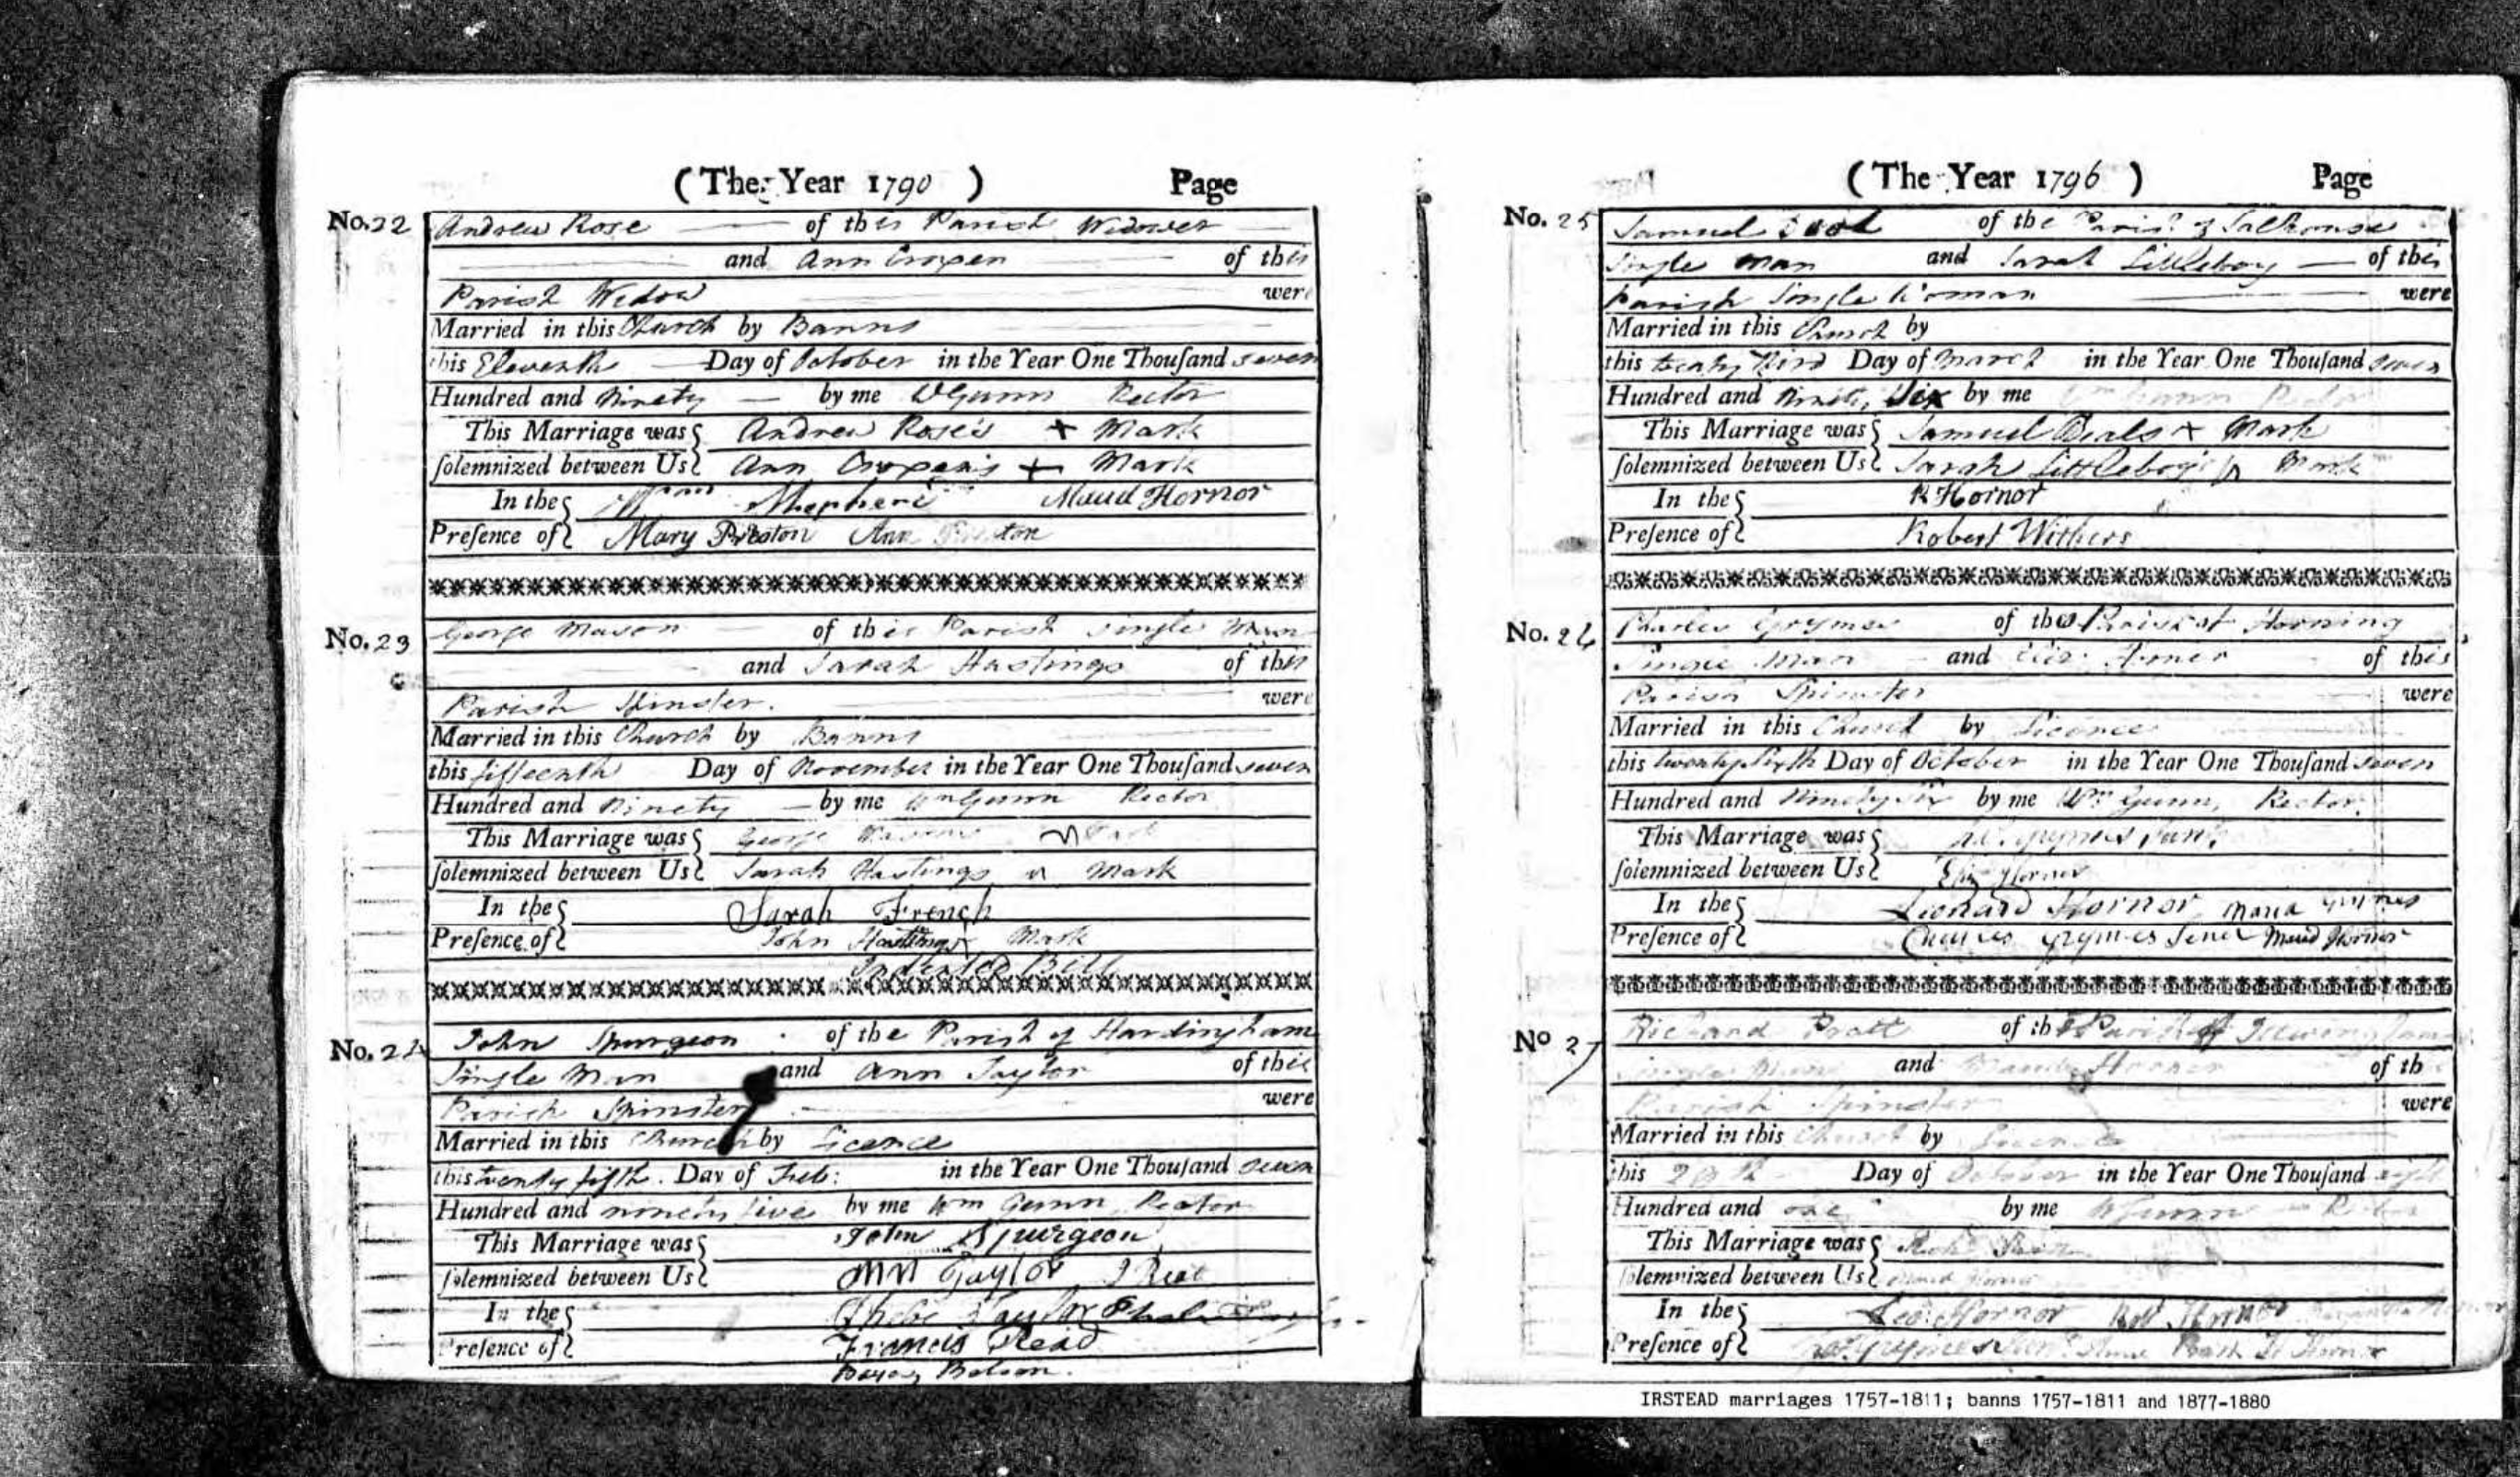 (The Year 1790) Page
No. 22 Andrew Rose of this Parish Widower
and Ann of this
Parish Widow were
Married in this Church by Banns
this Eleventh Day of October in the Year One Thouſand seven
Hundred and Ninety by me WGunn Rector
This Marriage was Andrew Rose's X Mark
ſolemnized between Us Ann X Mark
In the Shepherd Maud Hornor
Preſence of Mary Preston Ann Preston
No. 23 George Mason of this Parish Single Man
and Sarah Hastings of this
Parish Spinster. were
Married in this Church by Banns
this fifteenth Day of November in the Year One Thouſand seven
Hundred and Ninety by me Wm Gunn Rector
This Marriage was George Mark
ſolemnized between Us Sarah Hastings Mark
In the Sarah French
Preſence of John Hastings Mark
No. 24 John Spurgeon of the Parish of Hardingham
Single Man and Ann Taylor of this
Parish Spinster were
Married in this Church by Licence
this twenty fifth. Day of Feb: in the Year One Thouſand seven
Hundred and ninety five by me Wm Gunn Rector
This Marriage was John Spurgeon
ſolemnized between Us Ann Taylor
In the Phebe Taylor
Preſence of Francis Read
(The Year 1796) Page
No. 25 Samuel of the Parish of Salhouse
Single Man and Sarah Littleboy of this
Parish Single Woman were
Married in this Church by
this twenty third Day of March in the Year One Thouſand seven
Hundred and Ninety Six by me Rector
This Marriage was Samuel Beals X Mark
ſolemnized between Us Sarah Littleboy's Mark
In the R Hornor
Preſence of Robert Withers
No. 26 Charles Grymes of the Parish of Horning
Single Man and Eliz: Horner of this
Parish Spinster were
Married in this Church by Licence
this twenty sixth Day of October in the Year One Thouſand seven
Hundred and Ninety six by me Wm Gunn, Rector.
This Marriage was Grymes Junr.
ſolemnized between Us Eliz Hornor
In the Leonard Hornor Maria Grymes
Preſence of Charles Grymes Senr Maud Hornor
No 27 Richard Pratt of the Parish of
Single Man and Maud Hornor of th
Parish Spinster were
Married in this Church by Licence
this Day of October in the Year One Thouſand eight
Hundred and one by me WGunn
This Marriage was
ſolemnized between Us Maud Hornor
In the Leo: Hornor Hornor
Preſence of Grymes Hornor
IRSTEAD marriages 1757-1811; banns 1757-1811 and 1877-1880